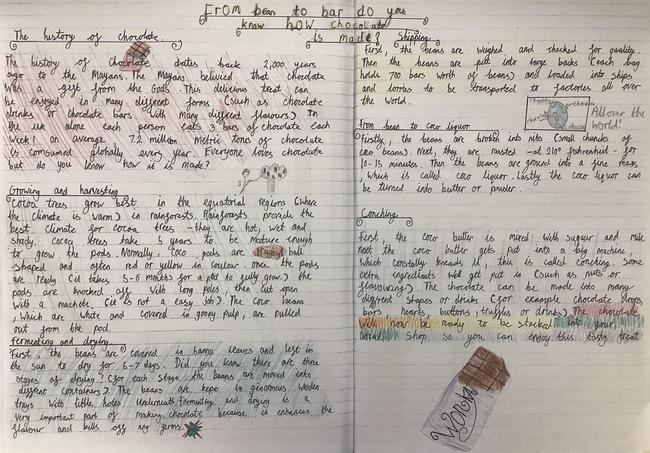 From bean to bar do you
know how chocolate
is made?
The history of chocolate.
The history of chocolate dates back 2,000 years
ago to the Mayans. The Mayans belivied that chocolate
was a gift from the Gods. This delicious treat can
be enjoyed in many different forms (such as chocolate
drinks or chocolate bars with many different flavours.) In
the uk alone each person eats 3 bars of chocolate each
week! on average 7.2 million metric tones of chocolate
is consumed globally every year. Everyone loves chocolate
but do you know how it is made?
Growing and harvesting
Cocoa trees grow best in the equatorial regions (where
the climate is warm) in rainforests. Rainforests provide the
best climate for cocoa trees - they are hot, wet and
shady. cocoa trees take 5 years to be mature enough
to grow the pods. Normally, coco pods are ball
shaped and often red or yellow in colour. once the pods
are ready (it takes 5-6 months for a pod to fully grow) the
pods are knocked off with long poles, then cut open
with a machete. (it is not a easy job). The coco beans
, which are white and covered in gooey pulp, are pulled
out from the pod.
Fermenting and drying
First, the beans are covered in banana leaves and left in
the sun to dry for 5-7 days. Did you know there are three
stages of drying? (for each stage the beans are moved into
different containers). The beans are kept in ginomous wooden
trays with little holes underneath. and drying is a
very important part of making chocolate because is enhances the
flavour and kills off any germs.
Shipping
First, the beans are weighed and checked for quality.
Then the beans are put into large backs (each bag
holds 700 bars worth of beans) and loaded into ships
and lorries to be transported to factories all over
the world.
All over the
world!
From bean to coco liquor
Firstly, the beans are broken into nibs (small chunks of
coco beans) Next, they are roasted -at 210° fahrenheit - for
10-15 minutes. Then the beans are ground into a fine mass
, which is called coco liquor. Lastly the coco liquor can
be turned into butter or powder.
Conching
First the coco butter is mixed with sugar and milk
Next the coco butter gets put into a big machine,
which constatly kneads it, this is called conching. Some
extra ingrediants will get put in (such as nuts or
flavouring). The chocolate can be made into many
different shapes or drinks (for example chocolate drops,
bars hearts, buttons, truffles or drinks.) The chocolate
will now be ready to be stacked into your
local shop so you can enjoy this tasty treat
Wonka